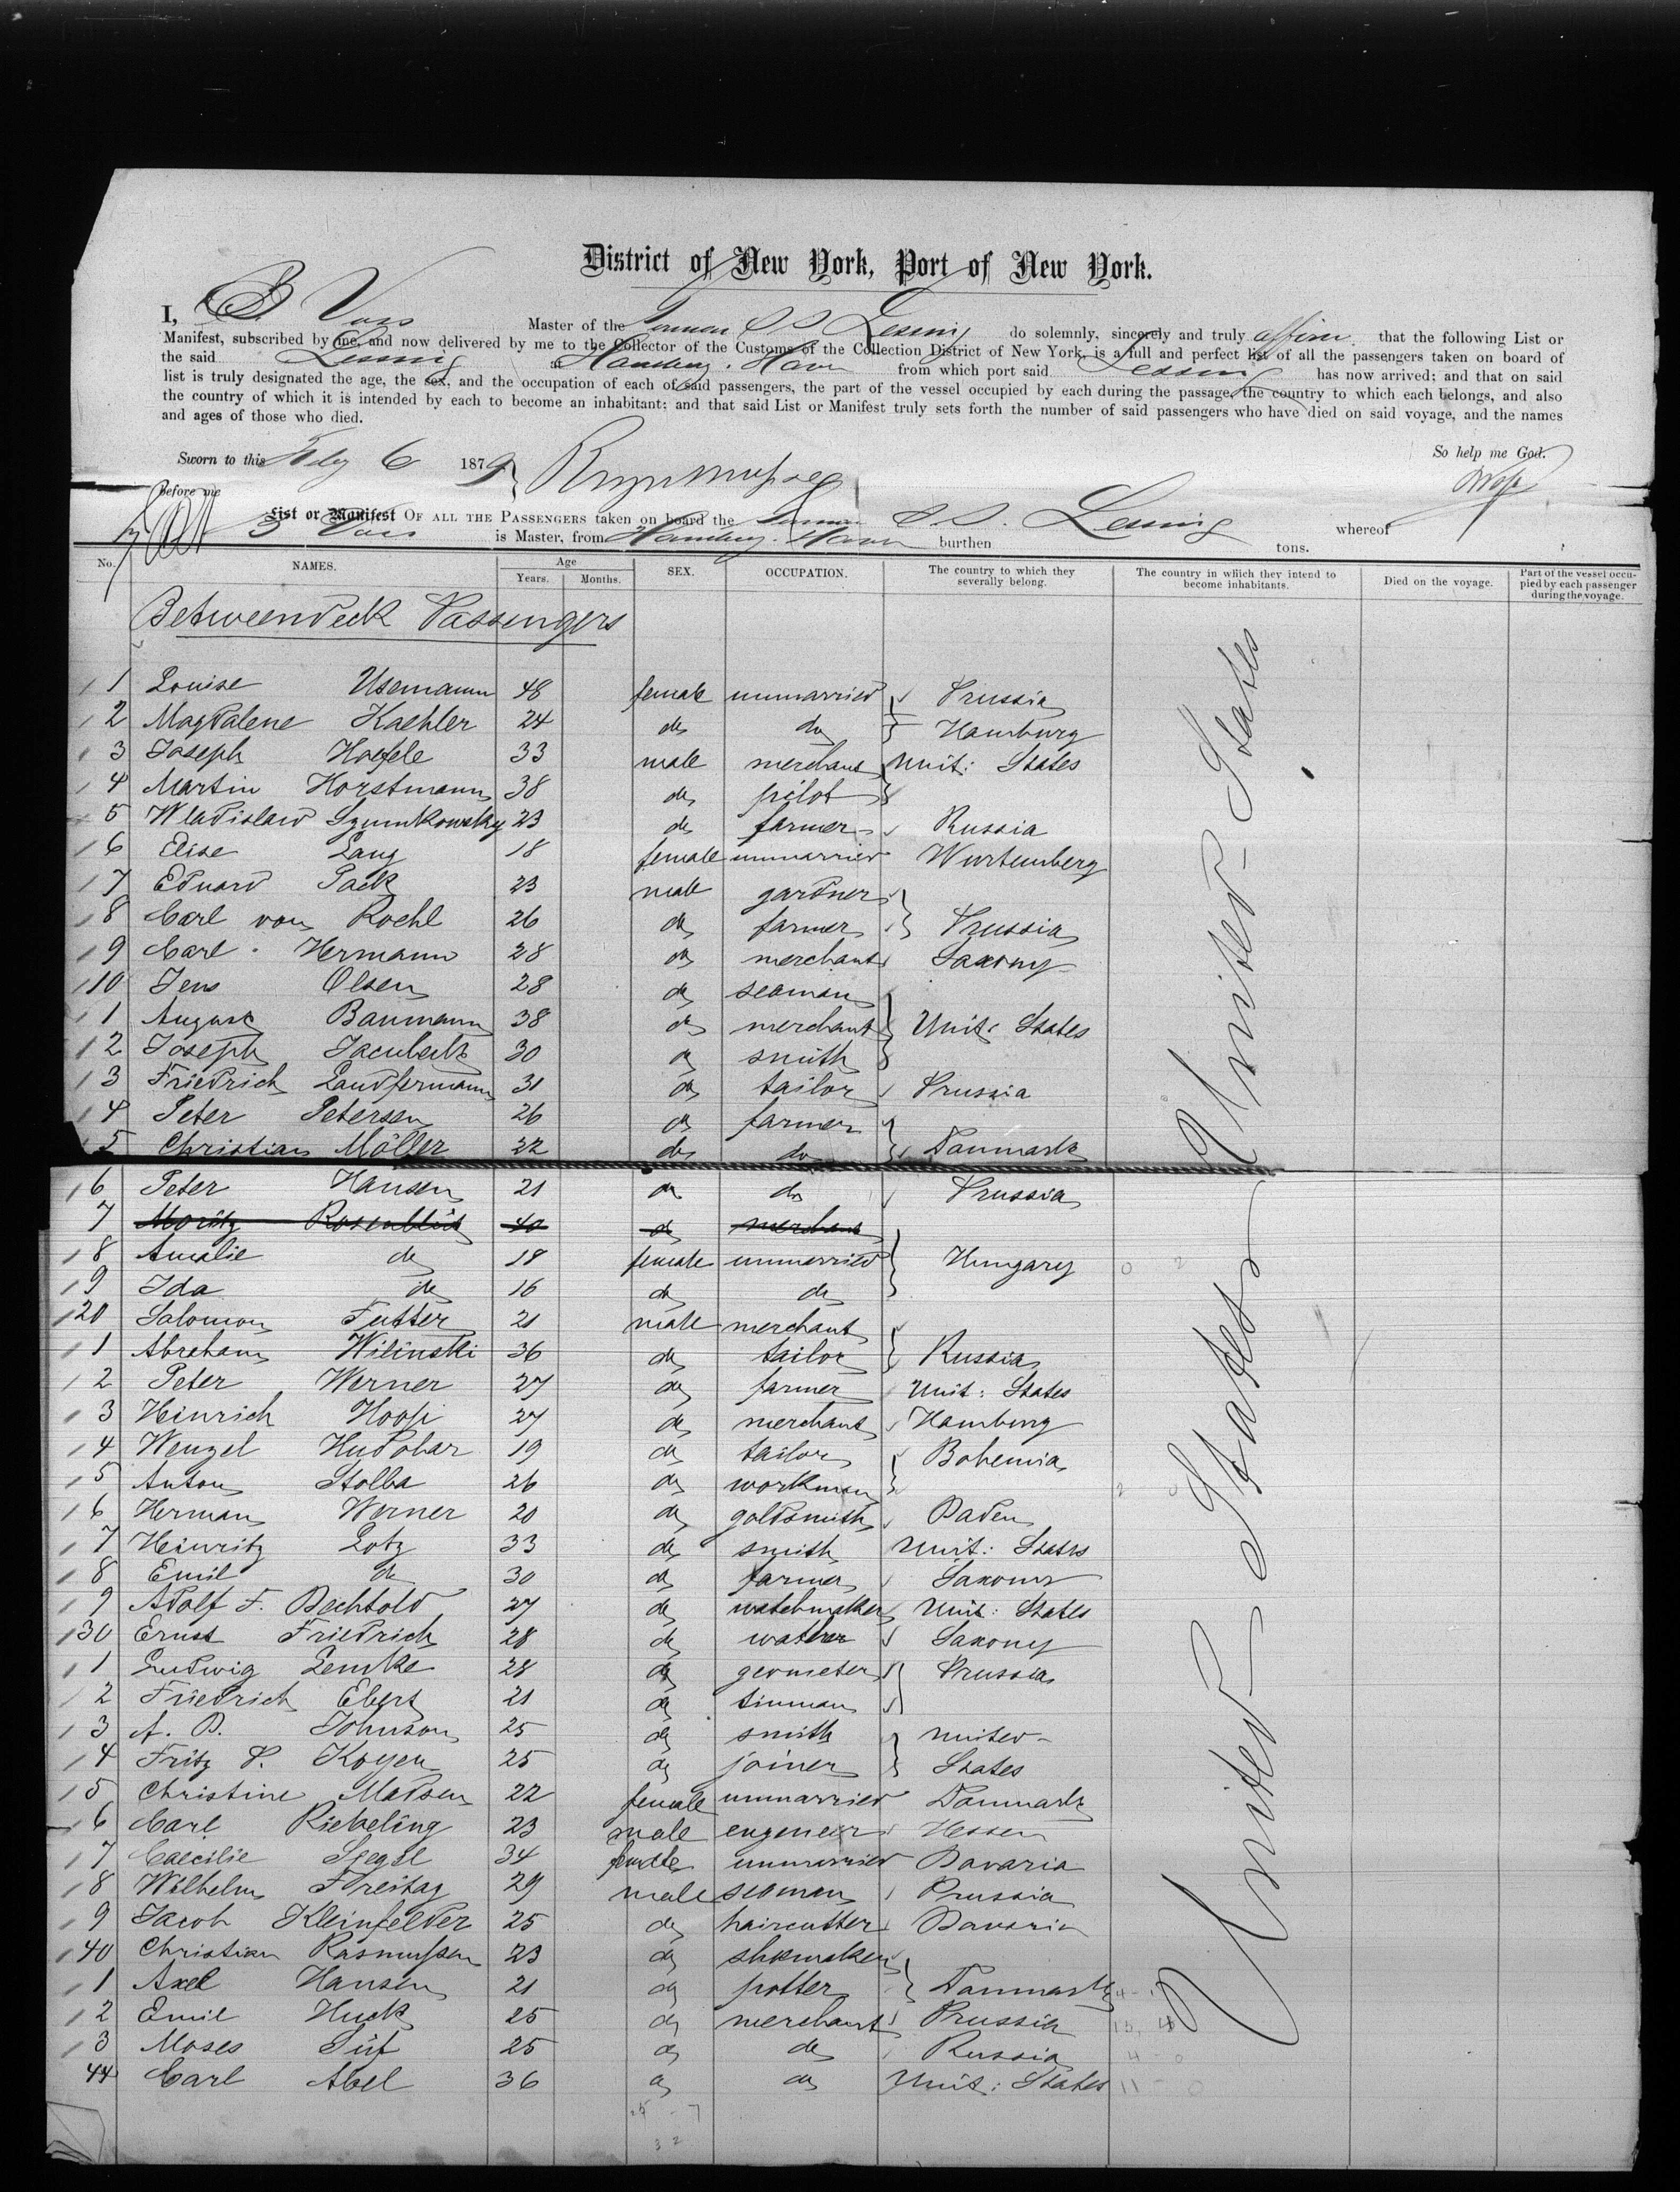 District of New York, Port of New York.
I, B Voss Master of the German S S Lessing do solemnly, sincerely and truly affirm that the following List or
Manifest, subscribed by me, and now delivered by me to the Collector of the Customs of the Collection District of New York, is a full and perfect list of all the passengers taken on board of
the said Lessing at Hamburg. Havre from which port said Lessing has now arrived; and that on said
list is truly designated the age, the sex, and the occupation of each of said passengers, the part of the vessel occupied by each during the passage, the country to which each belongs, and also
the country of which it is intended by each to become an inhabitant; and that said List or Manifest truly sets forth the number of said passengers who have died on said voyage, and the names
and ages of those who died.
So help me God.
Sworn to this Feby 6 1879
Before me
List or Manifest OF ALL THE PASSENGERS taken on board the German S.S. Lessing whereof
B Voss is Master, from Hamburg. Havre burthen tons.
No. NAMES. Age Years. Months. SEX. OCCUPATION. The country to which they severally belong. The country in which they intend to become inhabitants. Died on the voyage. Part of the vessel occupied by each passenger during the voyage.
Betweendeck Passengers
1 Louise Usemann 48 female unmarried Prussia
2 Magdalene Kaehler 24 do do Hamburg
3 Joseph Haefele 33 male merchant Unit: States
4 Martin Horstmann 38 do pilot
5 Wladislaw Szumkowsky 23 do farmer Russia
6 Elise Lang 18 female unmarried Wurtemberg
7 Eduard Pack 23 male gardner
8 Carl von Roehl 26 do farmer Prussia
9 Carl Hermann 28 do merchant Saxony
10 Jens Olsen 28 do seaman
1 August Baumann 38 do merchant Unit: States
2 Joseph Jacubeck 30 do smith
3 Friedrich Landfermann 31 do tailor Prussia
4 Peter Petersen 26 do farmer
5 Christian Möller 22 do do Danmark
6 Peter Hansen 21 do do Prussia
7 Moritz Rosenblüt 40 do merchant
8 Amalie do 18 female unmarried Hungary
9 Ida do 16 do do
20 Salomon Futter 21 male merchant
1 Abraham Wilinski 36 do tailor Russia
2 Peter Werner 27 do farmer Unit: States
3 Heinrich Hoopi 27 do merchant Hamburg
4 Wenzel Hudobar 19 do tailor Bohemia
5 Anton Stolba 26 do workman
6 Herman Werner 20 do goldsmith Baden
7 Heinritz Lotz 33 do smith Unit: States
8 Emil do 30 do farmer Saxony
9 Adolf F. Bechtold 27 do watchmaker Unit: States
30 Ernst Friedrich 28 do Saxony
1 Ludwig Lemke 28 do geometer Prussia
2 Friedrich Ebert 21 do tinman
3 A. B. Johnson 25 do smith United
4 Fritz P. Koyen 25 do joiner States
5 Christine Madsen 22 female unmarried Danmark
6 Carl Riekeling 23 male engeneer Hessen
7 Caecilie Siegel 34 female unmarried Bavaria
8 Wilhelm Freitag 29 male seaman Prussia
9 Jacob Kleinfelder 25 do haircutter Bavaria
40 Christian Rasmussen 23 do shoemaker
1 Axel Hansen 21 do potter Danmark
2 Emil Huck 25 do merchant Prussia
3 Moses Süt 25 do do Russia
44 Carl Abel 36 do do Unit: States
United States
United States